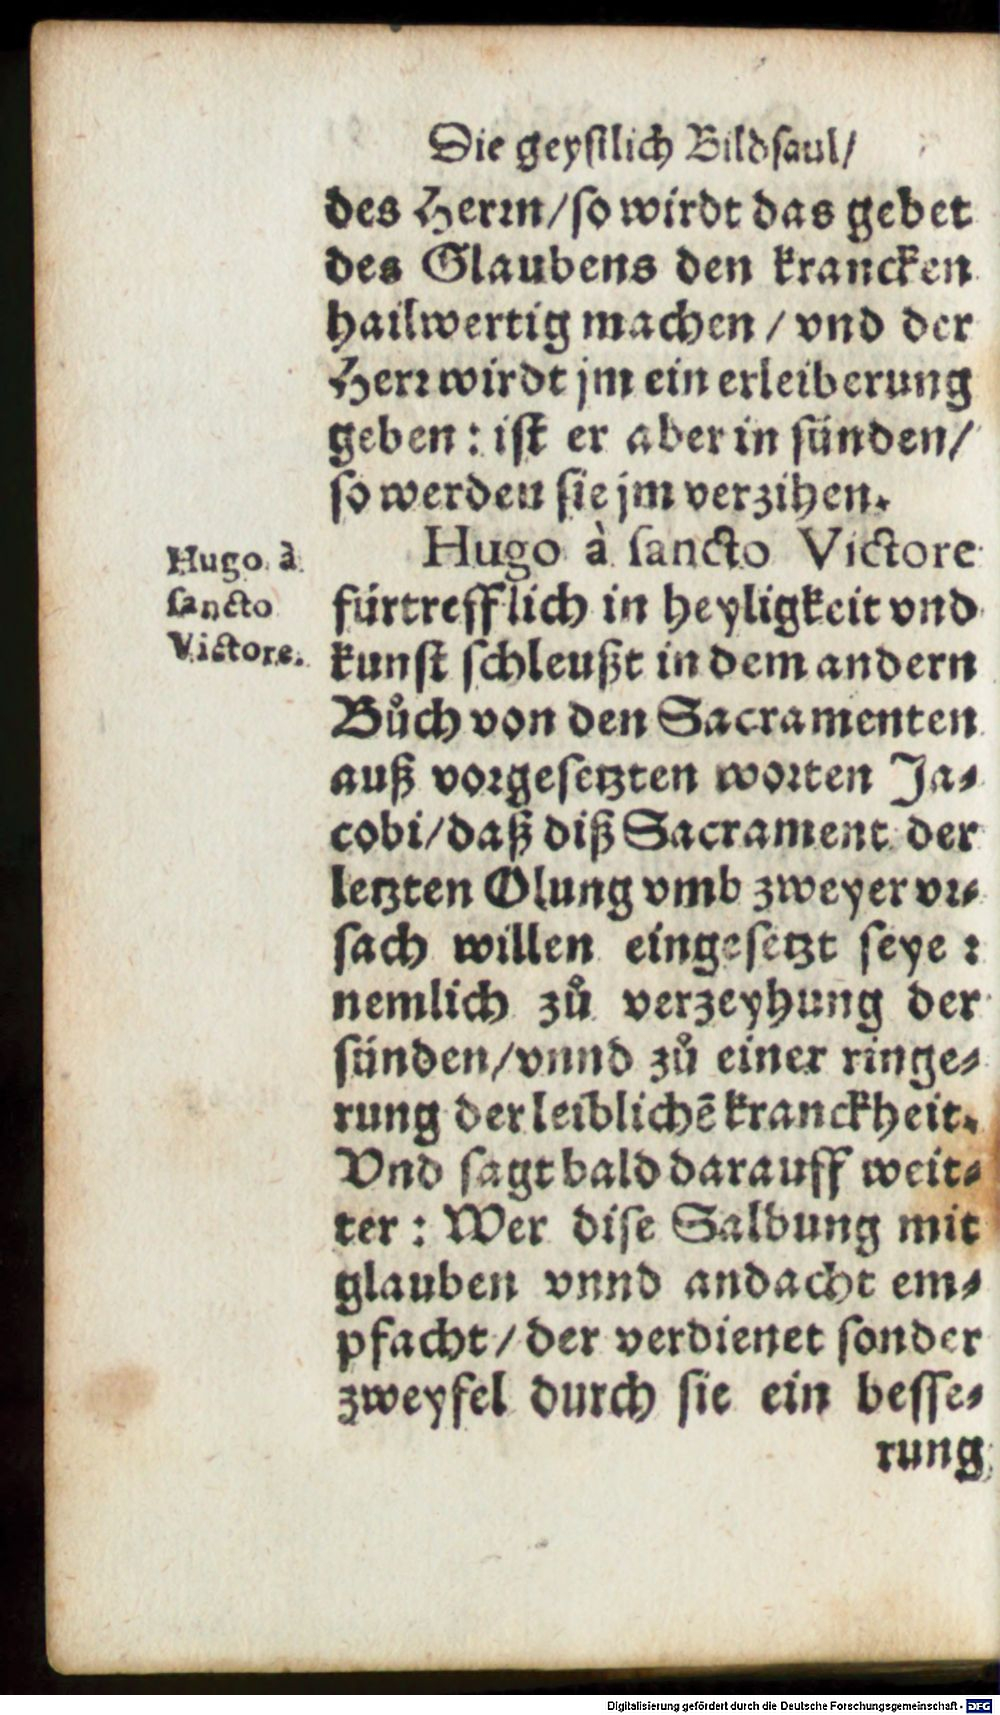 Die geystlich Bildsaul/
des Herrn/so wirdt das gebet
des Glaubens den krancken
hailwertig machen / vnd der
Herr wirdt jm ein erleiberung
geben : ist er aber in sünden/
so werden sie jm verzihen.
Hugo à sancto Victore
fürtrefflich in heyligkeit vnd
kunst schleußt in dem andern
Bůch von den Sacramenten
auß vorgesetzten worten Ja⸗
cobi/daß diß Sacrament der
letzten Olung vmb zweyer vr⸗
sach willen eingesetzt seye :
nemlich zů verzeyhung der
sünden/vnnd zů einer ringe⸗
rung der leiblichē kranckheit.
Vnd sagt bald darauff weit⸗
ter : Wer dise Salbung mit
glauben vnnd andacht em⸗
pfacht/der verdienet sonder
zweyfel durch sie ein besse⸗
rung
Hugo à
sancto
Victore.
Digitalisierung gefördert durch die Deutsche Forschungsgemeinschaft - DFG